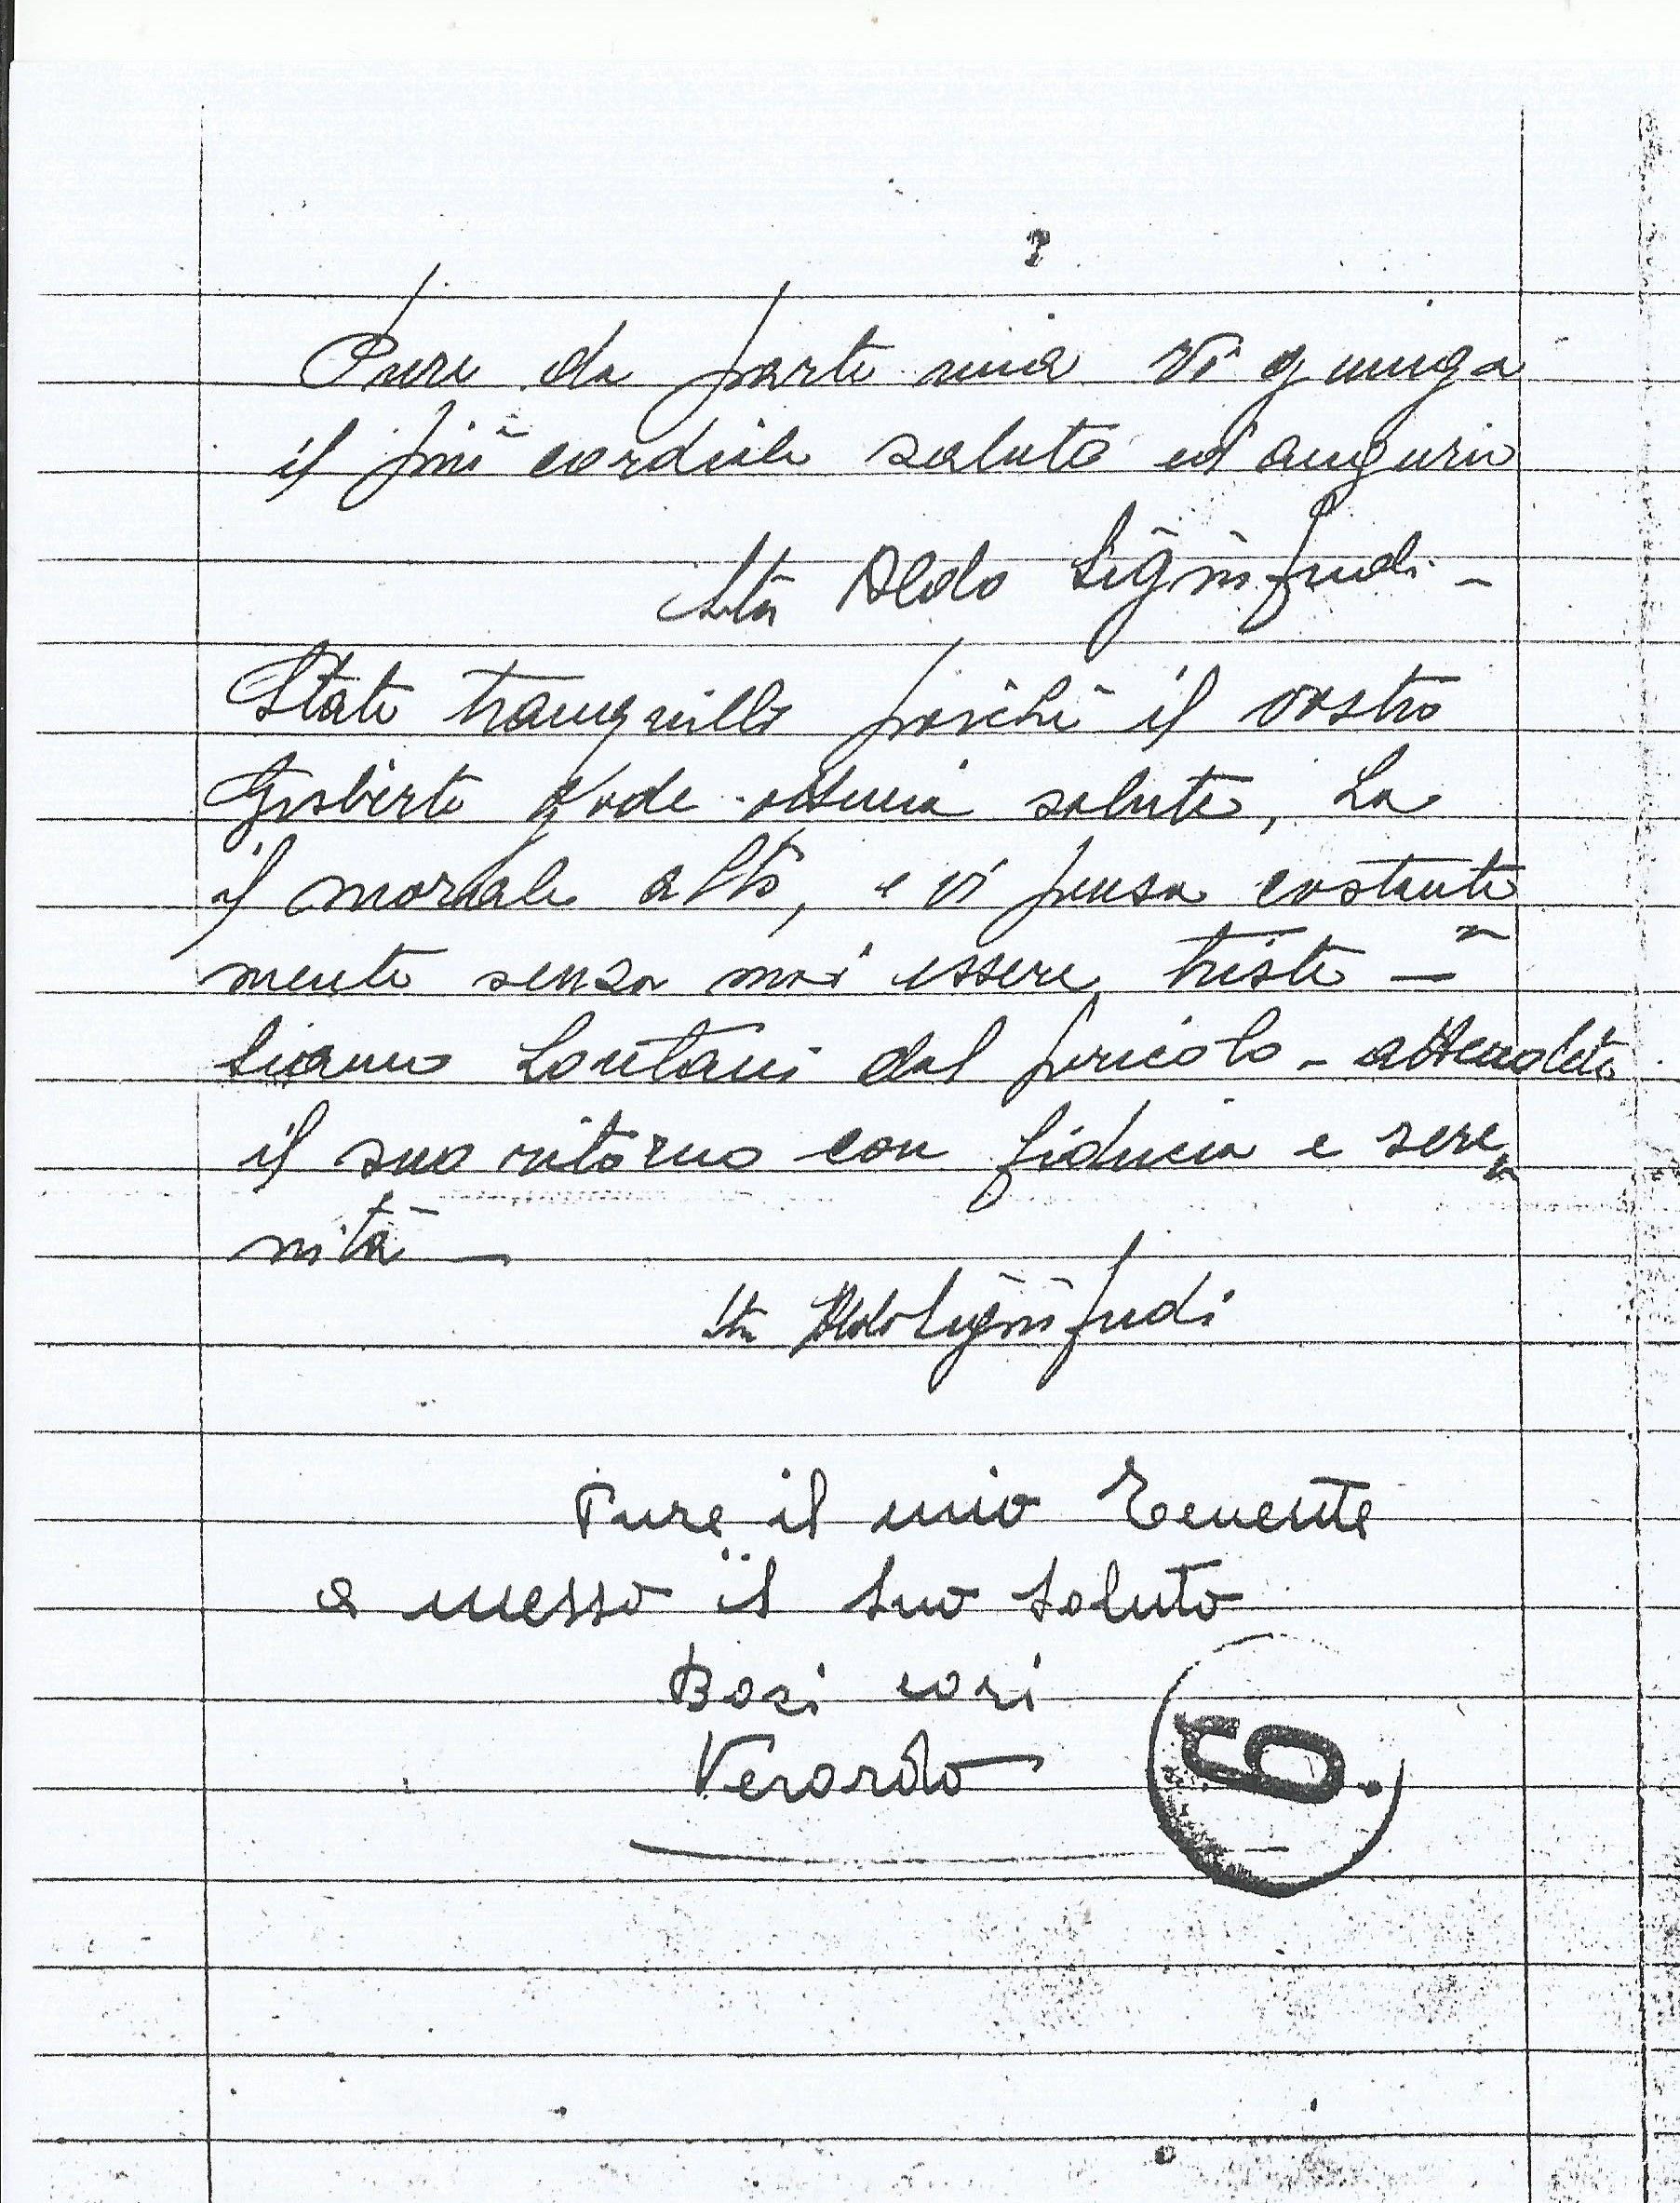 Pure da parte mia Vi giunga
il più cordiale saluto ed augurio
Aldo
State tranquilli poichè il vostro
Gisberto gode ottima salute, ha
il morale alto, e vi pensa costante
mente senza mai essere triste —
Siamo lontani dal pericolo - attendete
il suo ritorno con fiducia e sere
nità —
Aldo
Pure il mio Tenente
a messo il suo saluto
Baci cari
Verardo
6.